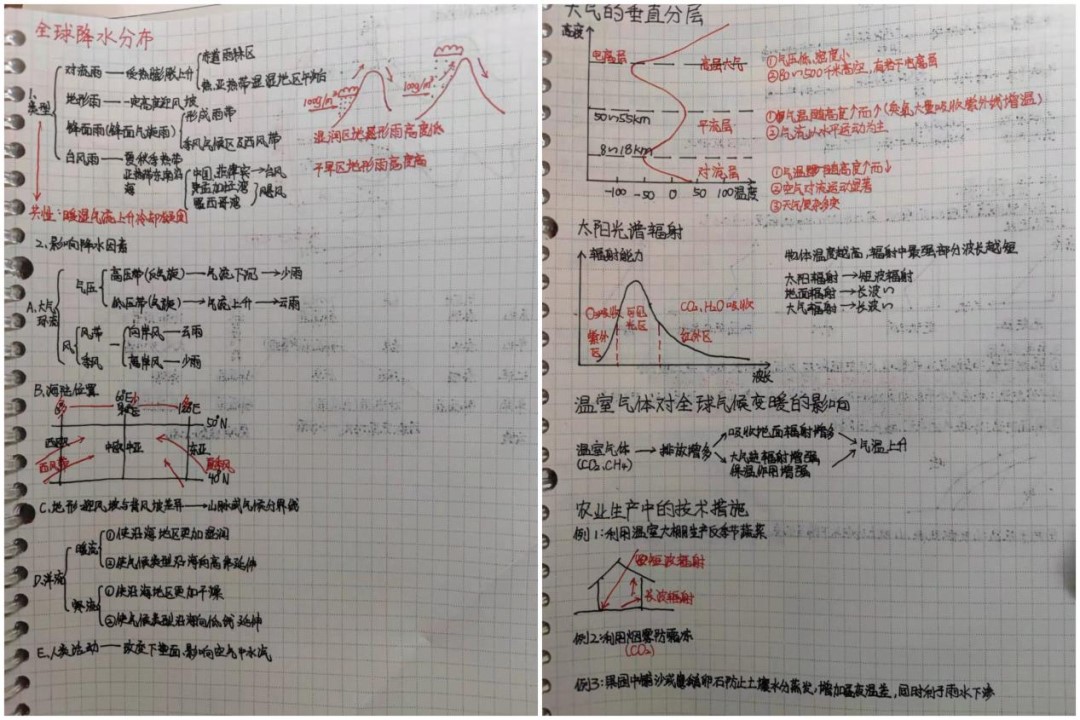 全球降水分布
1.类型
对流雨——受热膨胀上升
赤道雨林区
热、亚热带湿润地区午后
地形雨——一定高度迎风坡
锋面雨(锋面气旋雨)
形成雨带
季风气候区及西风带
台风雨——夏秋季热带
亚热带东南沿海
中国、菲律宾→台风
孟加拉湾
墨西哥湾
飓风
共性:暖湿气流上升冷却凝固
100g/m³
100g/m³
湿润区地形雨高度低
干旱区地形雨高度高
2.影响降水因素
A.大气环流
气压
高压带(反气旋)→气流下沉→少雨
低压带(气旋)→气流上升→云雨
风
风带
季风
向岸风→云雨
离岸风→少雨
B.海陆位置
60°E
120°E
50°N
西欧
中欧
中亚
东亚
西风带
40°N
C.地形:迎风坡与背风坡差异→山脉或气候分界线
D.洋流
暖流
①使沿海地区更加湿润
②使气候类型沿海向高纬延伸
寒流
①使沿海地区更加干燥
②使气候类型沿海向低纬延伸
E.人类活动——改变下垫面,影响空气中水汽
大气的垂直分层
高度
电离层
高层大气
①气压低、密度小
②80~500千米高空,有若干电离层
50~55km
平流层
①气温随高度↑而↑(臭氧大量吸收紫外线增温)
②气流以水平运动为主
8~18km
对流层
①气温随高度↑而↓
②空气对流运动显著
③天气复杂多变
-100 -50 0 50 100温度
太阳光谱辐射
辐射能力
物体温度越高,辐射中最强部分波长越短
太阳辐射→短波辐射
地面辐射→长波〃
大气辐射→长波〃
O₃吸收
紫外区
可见光区
CO₂、H₂O吸收
红外区
波长
温室气体对全球气候变暖的影响
温室气体
(CO₂、CH₄)
→排放增多
吸收地面辐射增多
大气逆辐射增强
保温作用增强
气温上升
农业生产中的技术措施
例1:利用温室大棚生产反季节蔬菜
短波辐射
长波辐射
例2:利用烟雾防霜冻
(CO₂)
例3:果园中铺沙或鹅卵石防止土壤水分蒸发,增加昼夜温差,同时利于雨水下渗